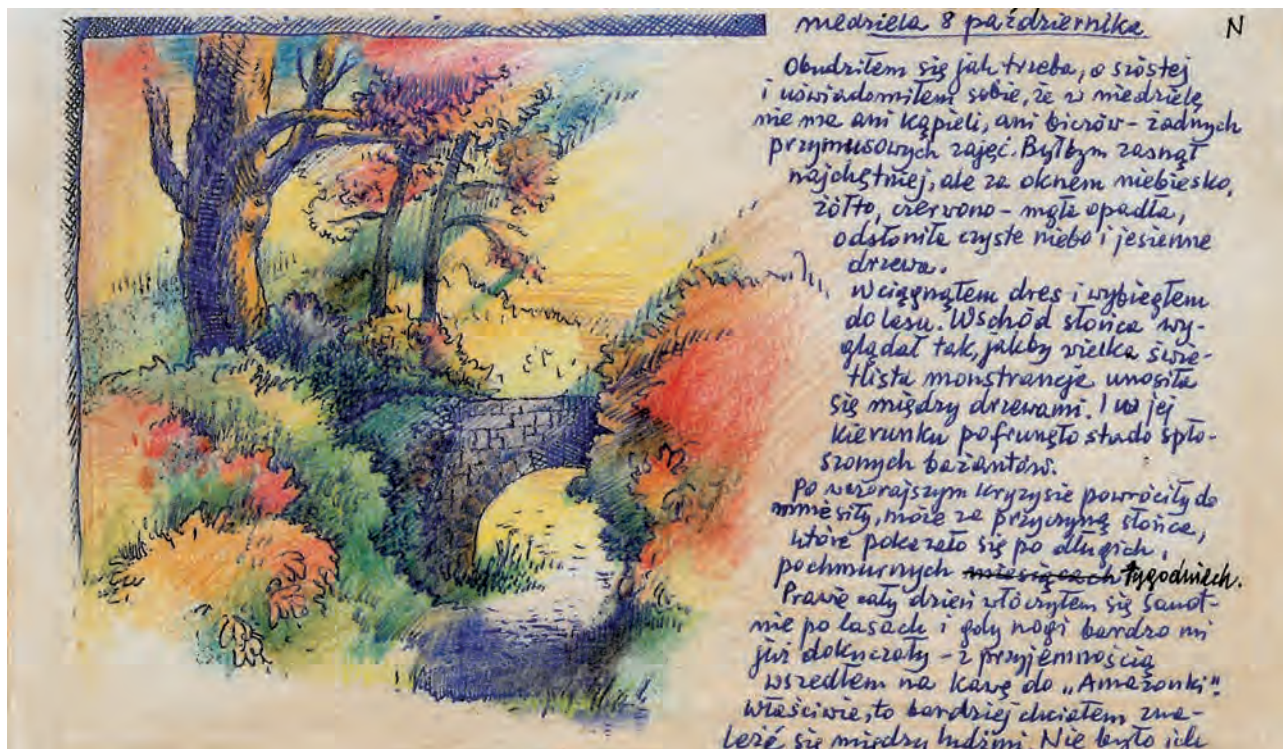 niedziela 8 października
N
Obudziłem się jak trzeba, o szóstej
i uświadomiłem sobie, że w niedzielę
nie ma ani kąpieli, ani biczów – żadnych
przymusowych zajęć. Byłbym zasnął
najchętniej, ale za oknem niebiesko,
żółto, czerwono – mgła opadła,
odsłoniła czyste niebo i jesienne
drzewa.
Wciągnąłem dres i wybiegłem
do lasu. Wschód słońca wy-
glądał tak, jakby wielka świe-
tlista monstrancja unosiła
się między drzewami. I w jej
kierunku pofrunęło stado spło-
szonych bażantów.
Po wczorajszym kryzysie powróciły do
mnie siły, może za przyczyną słońca,
które pokazało się po długich,
pochmurnych miesiącach tygodniach.
Prawie cały dzień włóczyłem się samot-
nie po lasach i gdy nogi bardzo mi
już dokuczały – z przyjemnością
wszedłem na kawę do „Amazonki".
Właściwie, to bardziej chciałem zna-
leźć się między ludźmi. Nie było ich